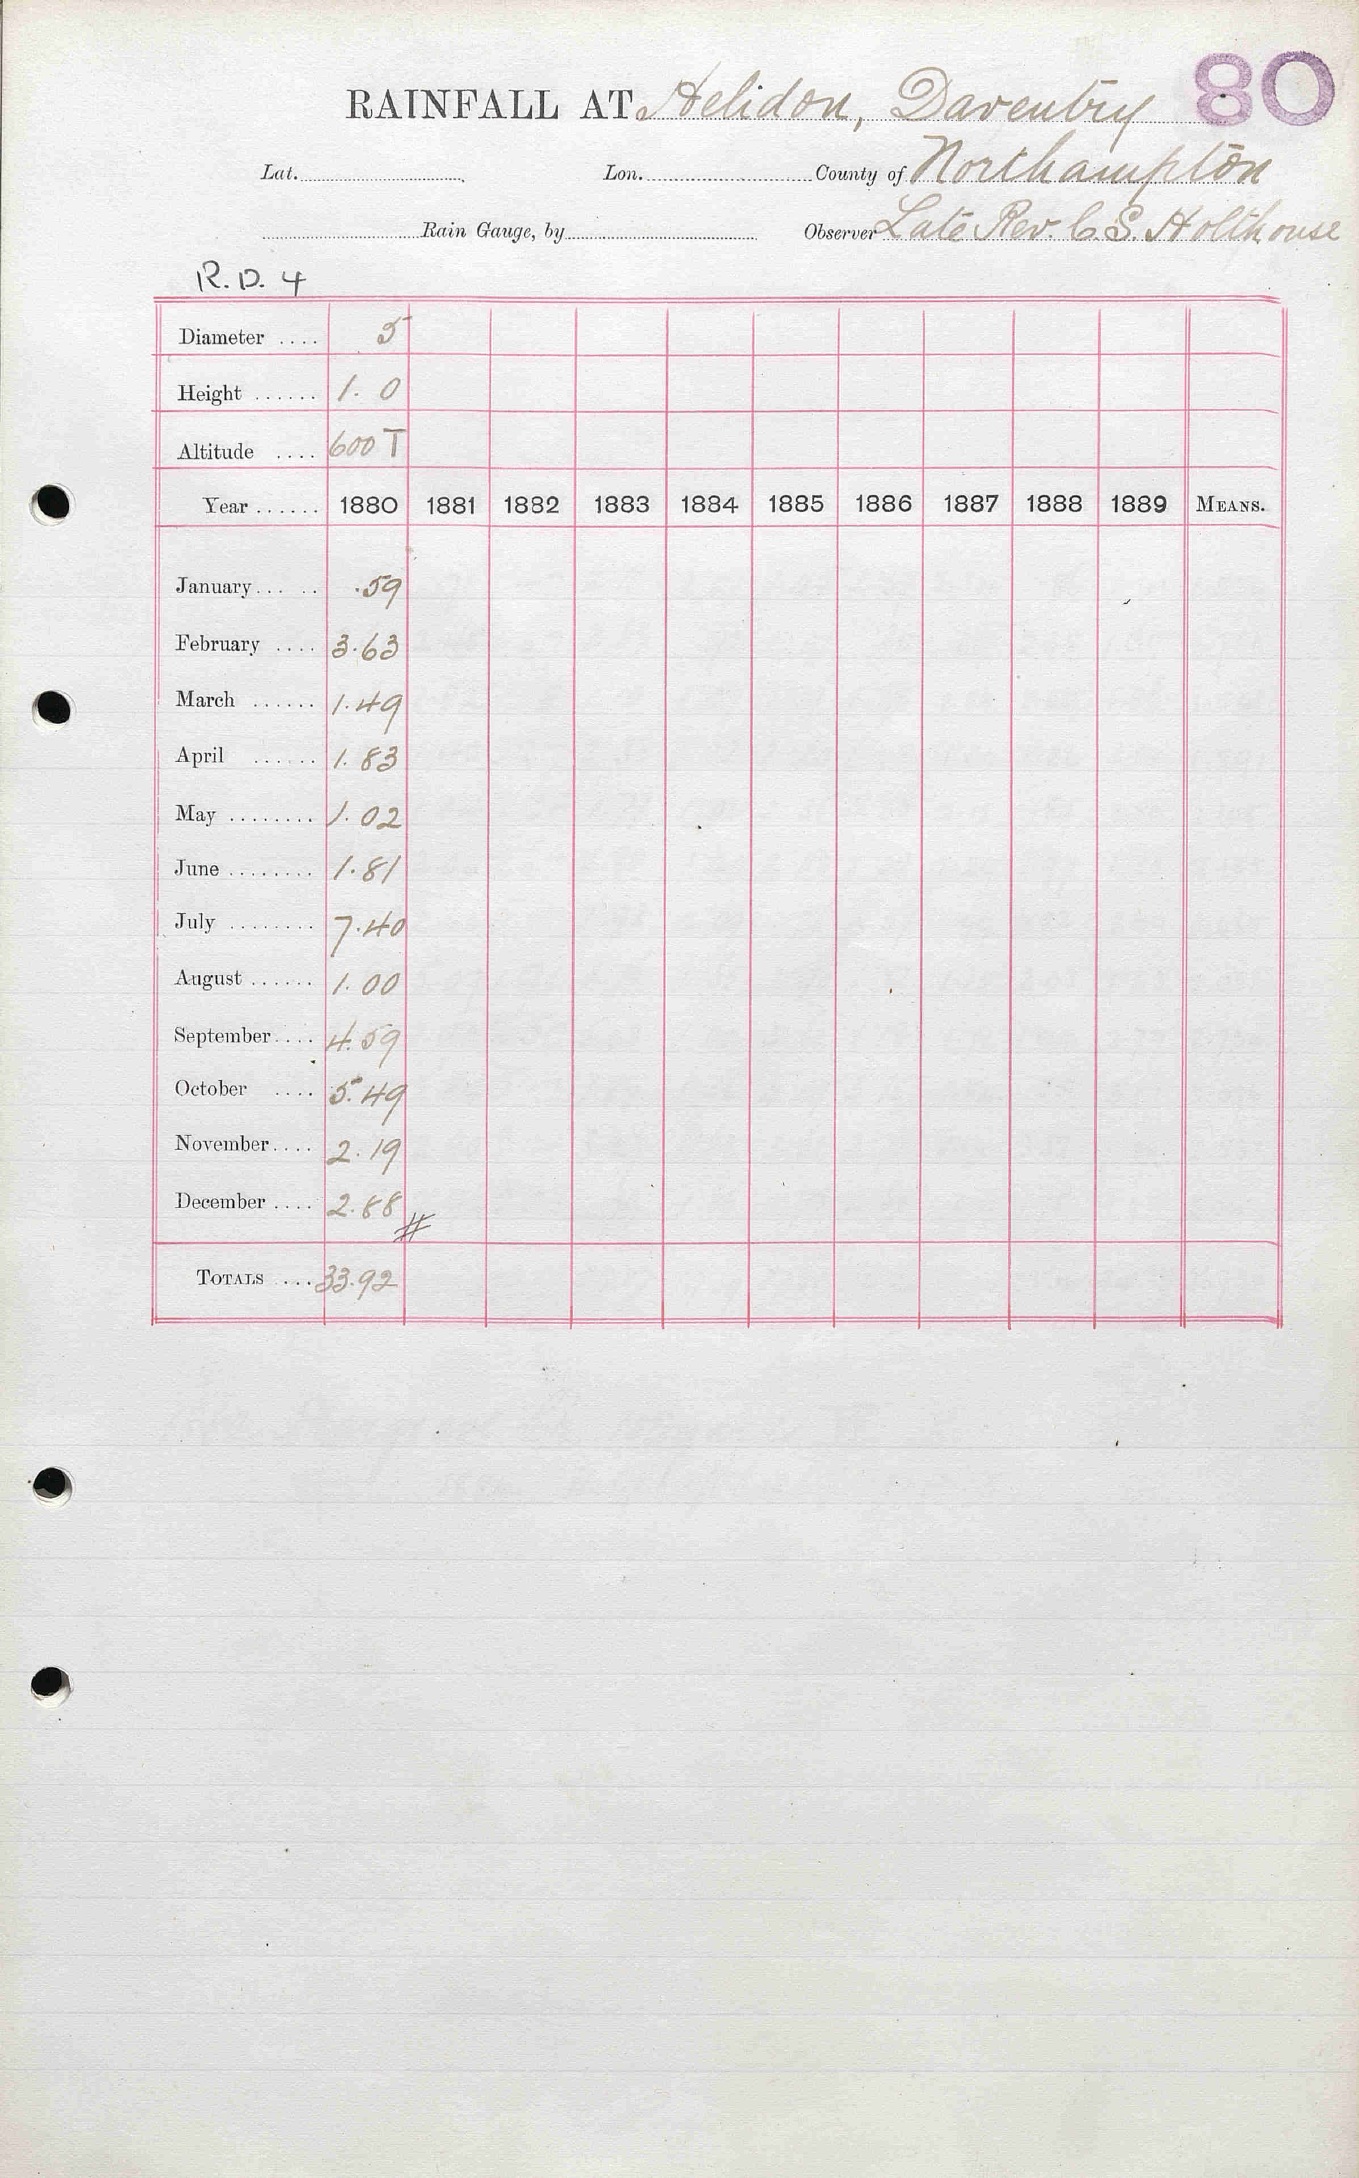 80
RAINFALL AT Helidon, Daventry
Lat. Lon. County of Northampton
Rain Gauge, by Observer Late Rev. C. S. Holthouse
R.D. 4
Diameter .... 5
Height ...... 1. 0
Altitude .... 600 T
Year ...... 1880 1881 1882 1883 1884 1885 1886 1887 1888 1889 MEANS.
January... .. .59
February .... 3.63
March ...... 1.49
April ...... 1.83
May ........ 1.02
June ........ 1.81
July ........ 7.40
August ...... 1.00
September.... 4.59
October .... 5.49
November.... 2.19
December .... 2.88 #
TOTALS .... 33.92